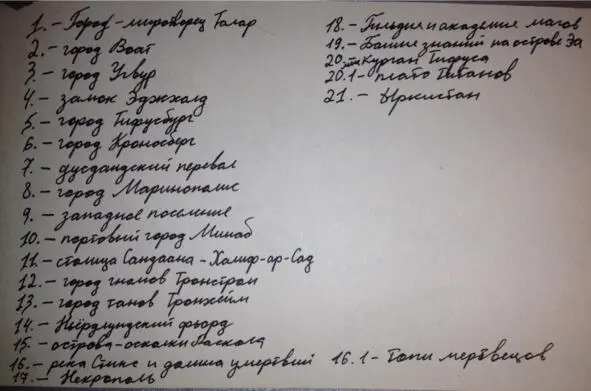 1. - Город - миротворец Талар
2. - город Воат
3. - город Угвур
4. - замок Эджхалд
5. - город Тифусбург
6. - город Кроносберг
7. - дусдандский перевал
8. - город Маринополис
9. - западное поселение
10. - портовый город Минаб
11. - столица Сандаана - Халиф-ар-Сад
12. - город гномов Тронстром
13. - город танов Тронхейм
14. - Ньёрдлундский фьорд
15. - острова-осколки Раскола
16. - река Стикс и долина умертвий
16.1 - Топи мертвецов
17. - Некрополь
18. - Гильдия и академия магов
19. - Башня знаний на острове Эа
20. Курган Тифуса
20.1 - плато Титанов
21. - Ыркистан